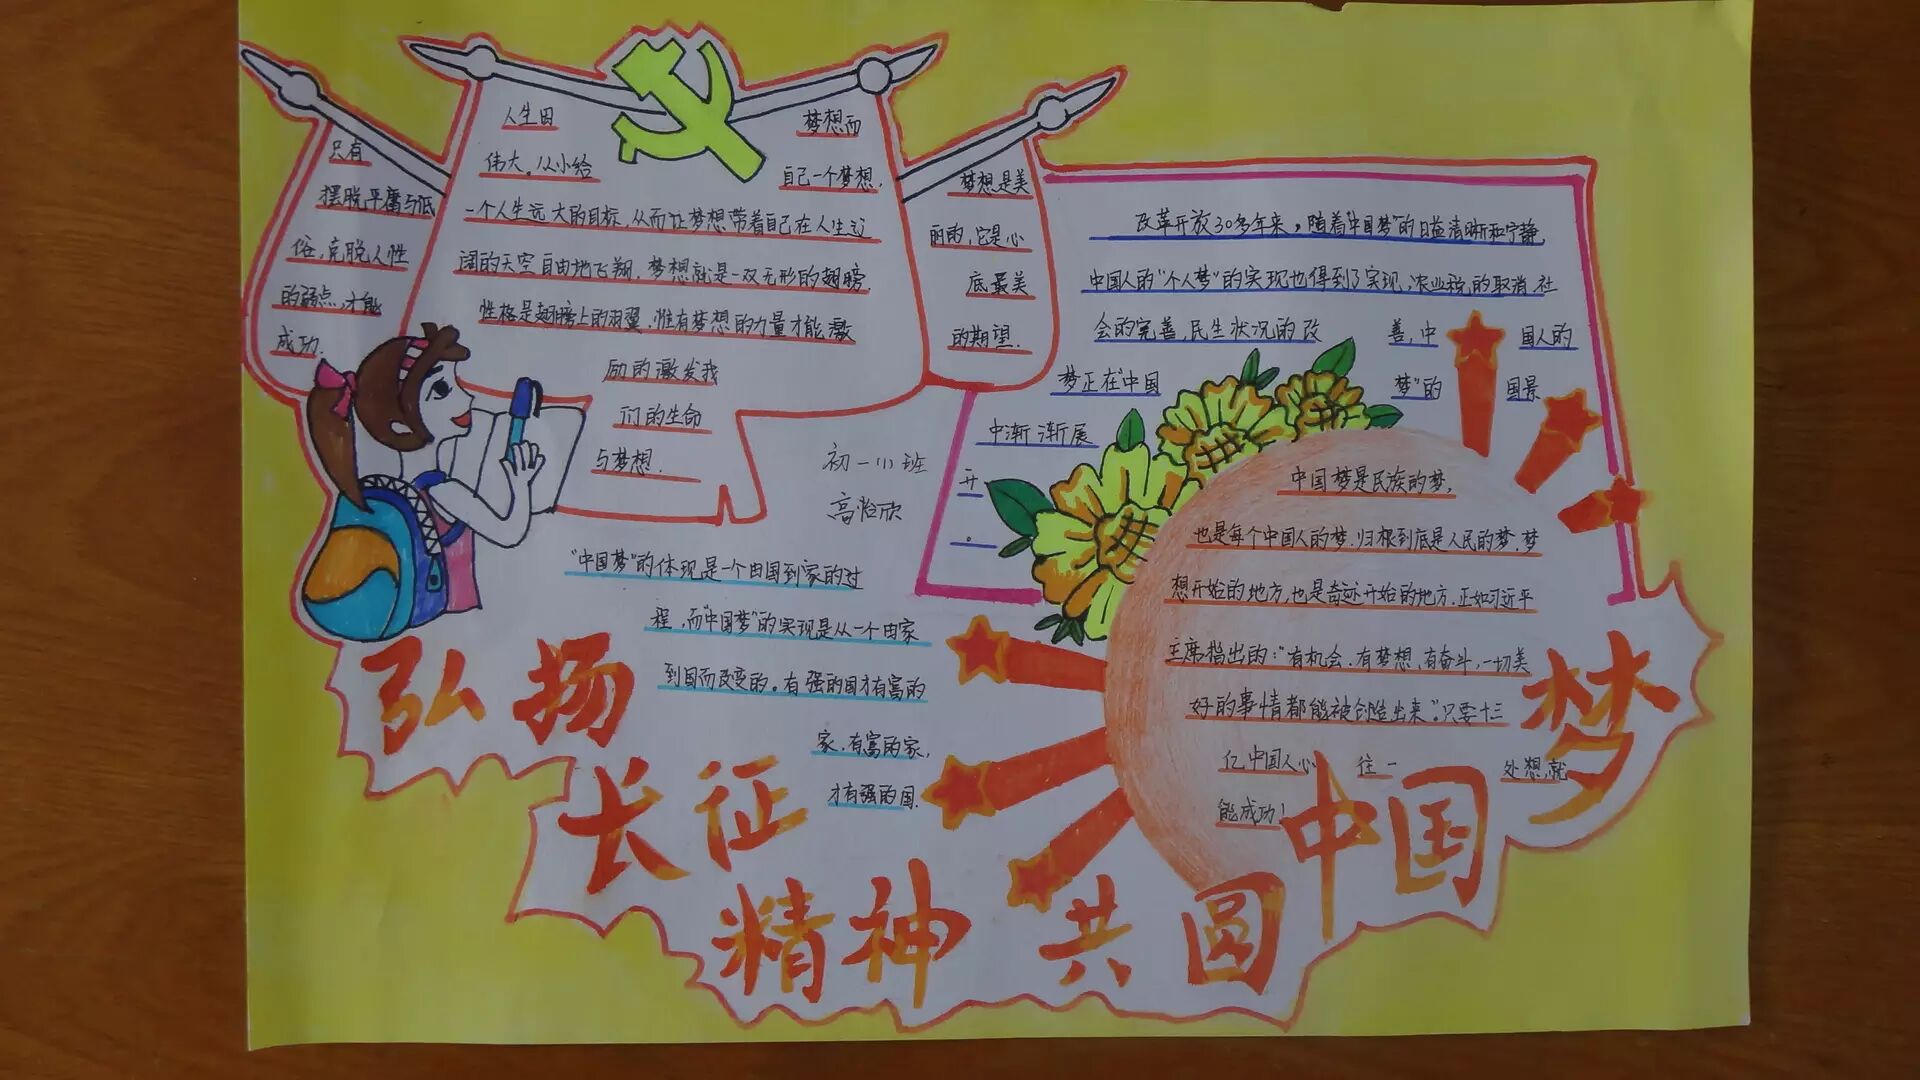 只有
摆脱平庸与低
俗，克脱人性
的弱点，才能
成功．
人生因 梦想而
伟大。从小给 自己一个梦想，
一个人生远大的目标，从而让梦想带着自己在人生辽
阔的天空自由地飞翔，梦想就是一双无形的翅膀．
性格是翅膀上的羽翼，惟有梦想的力量才能激
励的激发我
们的生命
与梦想．
梦想是美
丽的，它是心
底最美
的期望．
改革开放30多年来，随着"中国梦"的日益清晰和宁静，
中国人的"个人梦"的实现也得到了实现，农业税的取消，社
会的完善，民生状况的改 善，中 国人的
梦正在"中国 梦"的 国景
中渐渐展
开
。
初一(1)班
高怡欣
"中国梦"的体现是一个由国到家的过
程，而"中国梦"的实现是从一个由家
到国而改变的。有强的国才有富的
家，有富的家，
才有强的国．
中国梦是民族的梦，
也是每个中国人的梦．归根到底是人民的梦．梦
想开始的地方，也是奇迹开始的地方．正如习近平
主席指出的："有机会，有梦想，有奋斗，一切美
好的事情都能被创造出来"。只要十三
亿中国人心 往一 处想，就
能成功！
弘扬
长征
精神 共圆
中国梦